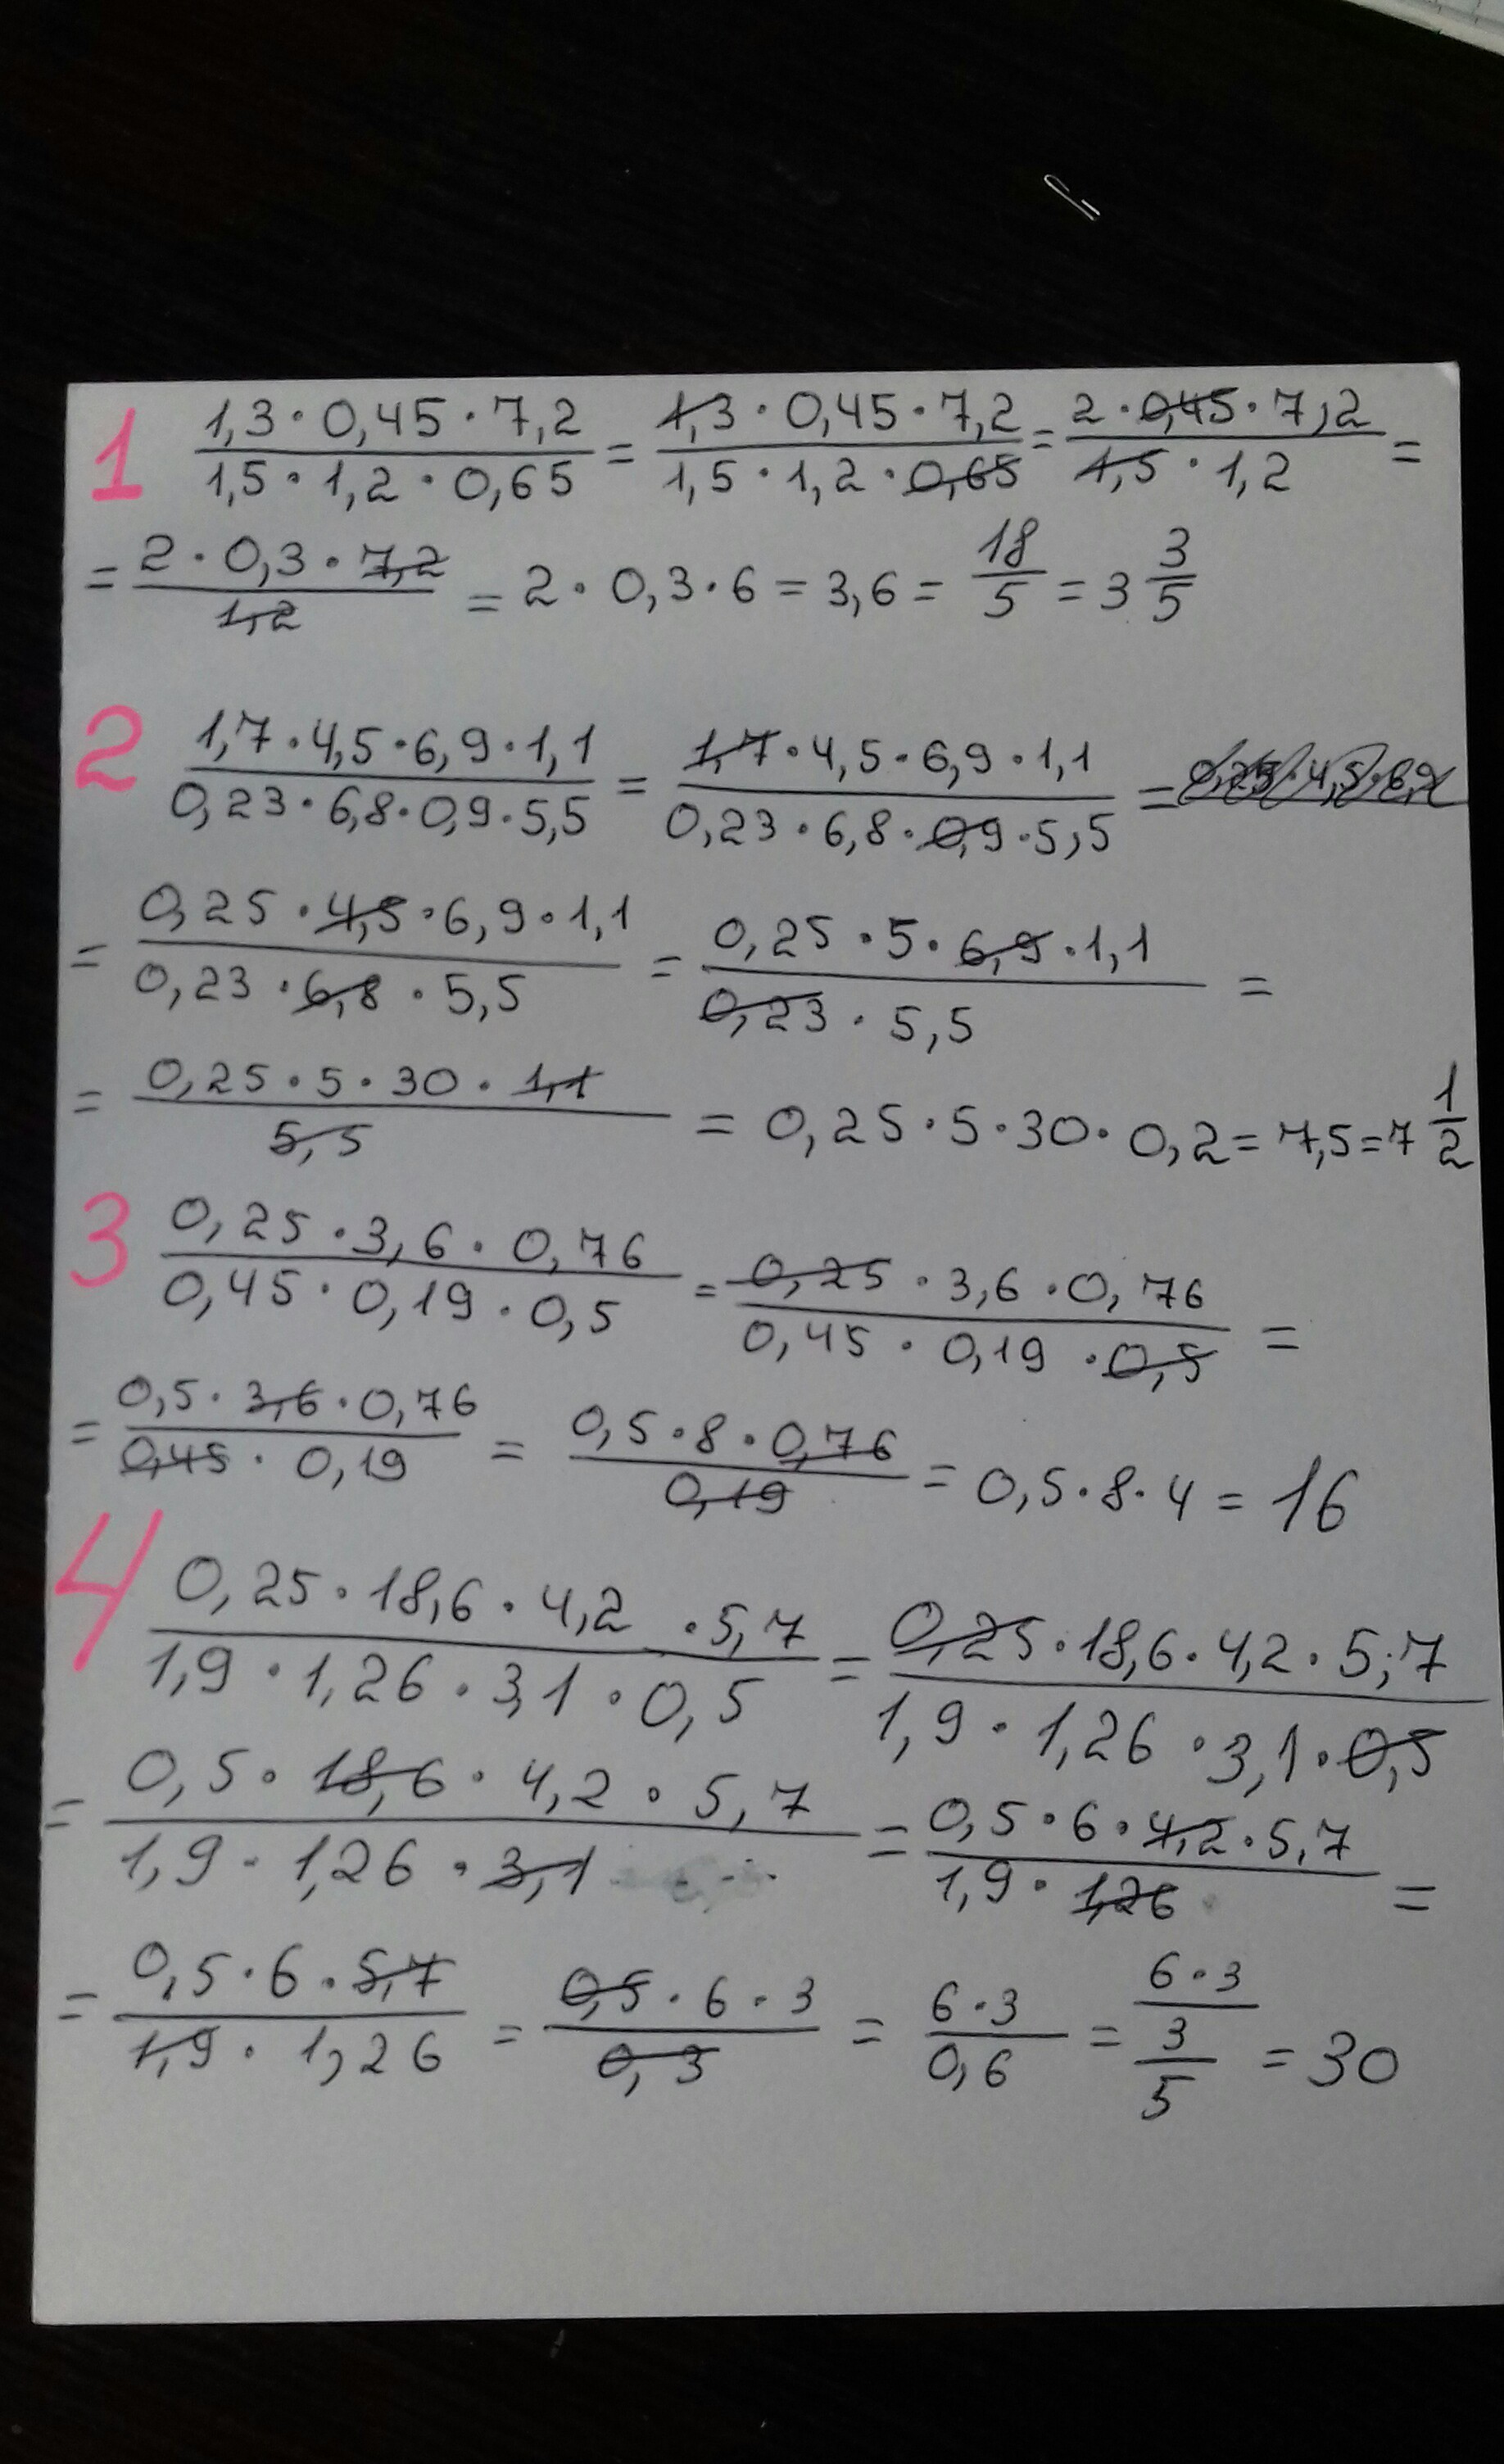 1 1,3 · 0,45 · 7,2 / 1,5 · 1,2 · 0,65 = 1,3 · 0,45 · 7,2 / 1,5 · 1,2 · 0,65 = 2 · 0,45 · 7,2 / 1,5 · 1,2 =
= 2 · 0,3 · 7,2 / 1,2 = 2 · 0,3 · 6 = 3,6 = 18/5 = 3 3/5
2 1,7 · 4,5 · 6,9 · 1,1 / 0,23 · 6,8 · 0,9 · 5,5 = 1,7 · 4,5 · 6,9 · 1,1 / 0,23 · 6,8 · 0,9 · 5,5 =
= 0,25 · 4,5 · 6,9 · 1,1 / 0,23 · 6,8 · 5,5 = 0,25 · 5 · 6,9 · 1,1 / 0,23 · 5,5 =
= 0,25 · 5 · 30 · 1,1 / 5,5 = 0,25 · 5 · 30 · 0,2 = 7,5 = 7 1/2
3 0,25 · 3,6 · 0,76 / 0,45 · 0,19 · 0,5 = 0,25 · 3,6 · 0,76 / 0,45 · 0,19 · 0,5 =
= 0,5 · 3,6 · 0,76 / 0,45 · 0,19 = 0,5 · 8 · 0,76 / 0,19 = 0,5 · 8 · 4 = 16
4 0,25 · 18,6 · 4,2 · 5,7 / 1,9 · 1,26 · 3,1 · 0,5 = 0,25 · 18,6 · 4,2 · 5,7 / 1,9 · 1,26 · 3,1 · 0,5
= 0,5 · 18,6 · 4,2 · 5,7 / 1,9 · 1,26 · 3,1 = 0,5 · 6 · 4,2 · 5,7 / 1,9 · 1,26 =
= 0,5 · 6 · 5,7 / 1,9 · 1,26 = 0,5 · 6 · 3 / 0,3 = 6 · 3 / 0,6 = 6 · 3 / 3/5 = 30